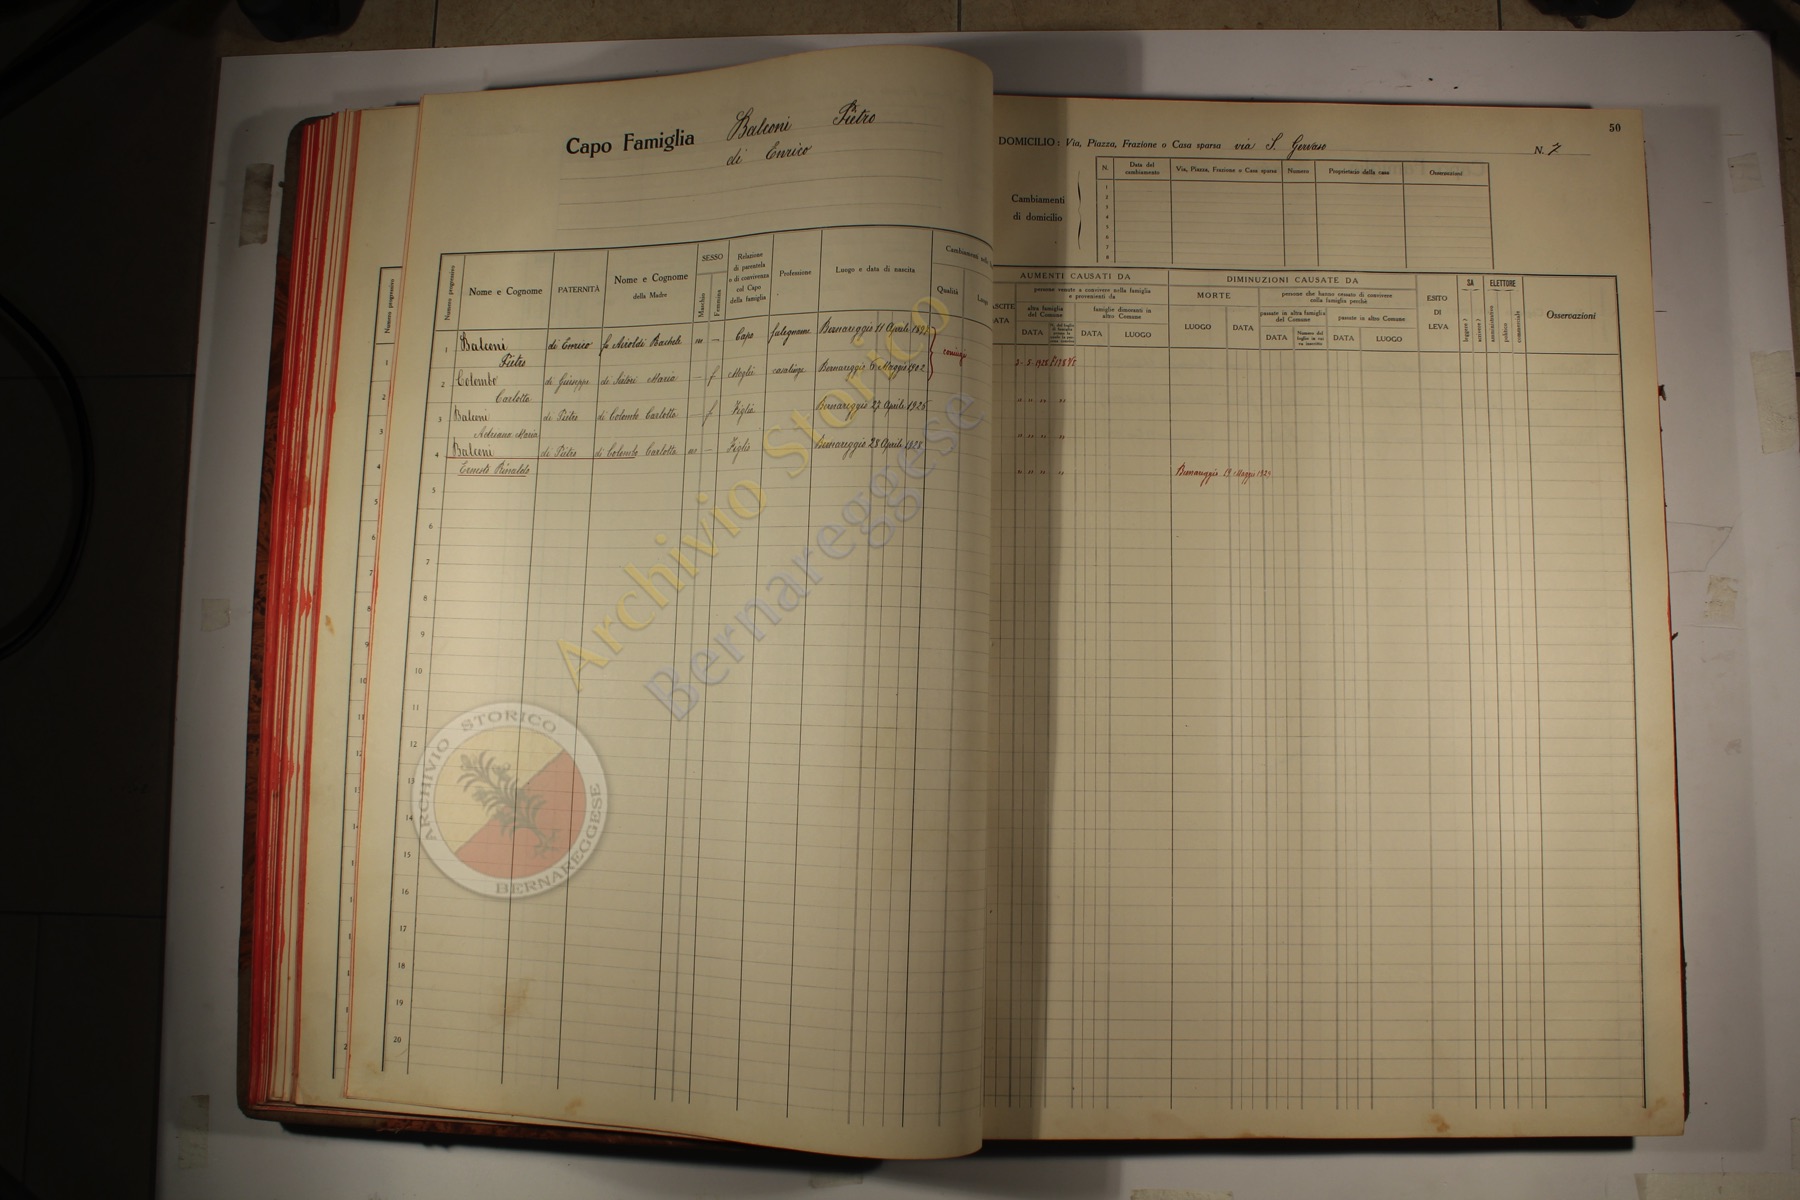 Capo Famiglia Balconi Pietro
di Enrico
Numero progressivo
Nome e Cognome
PATERNITÀ
Nome e Cognome
della Madre
SESSO
Maschio
Femmina
Relazione
di parentela
o di convivenza
col Capo
della famiglia
Professione
Luogo e data di nascita
Qualità
1 Balconi di Enrico fu Airoldi m — Capo falegname Bernareggio 11 Aprile
Pietro
2 Colombo di Giuseppe di Maria — f Moglie casalinga Bernareggio 6 Maggio 1902
Carlotta
3 Balconi di Pietro di Colombo Carlotta — f Figlia Bernareggio 27 Aprile 1925
Adriana Maria
4 Balconi di Pietro di Colombo Carlotta m — Figlio Bernareggio 28 Aprile 1928
Ernesto Rinaldo
5
6
7
8
9
10
11
12
13
14
15
16
17
18
19
20
50
DOMICILIO: Via, Piazza, Frazione o Casa sparsa via S. Gervaso N. 7
Cambiamenti
di domicilio
N.
Data del
cambiamento
Via, Piazza, Frazione o Casa sparsa
Numero
Proprietario della casa
Osservazioni
1
2
3
4
5
6
7
8
AUMENTI CAUSATI DA
persone venute a convivere nella famiglia
e provenienti da
altra famiglia
del Comune
famiglie dimoranti in
altro Comune
DATA
DATA
LUOGO
DIMINUZIONI CAUSATE DA
MORTE
LUOGO
DATA
persone che hanno cessato di convivere
nella famiglia perchè
passate in altra famiglia
del Comune
passate in altro Comune
DATA
DATA
LUOGO
ESITO
DI
LEVA
SA
leggere ?
scrivere ?
ELETTORE
amministrativo
politico
commerciale
Osservazioni
Bernareggio 19 Maggio
Archivio Storico
Bernareggese
ARCHIVIO STORICO
BERNAREGGESE